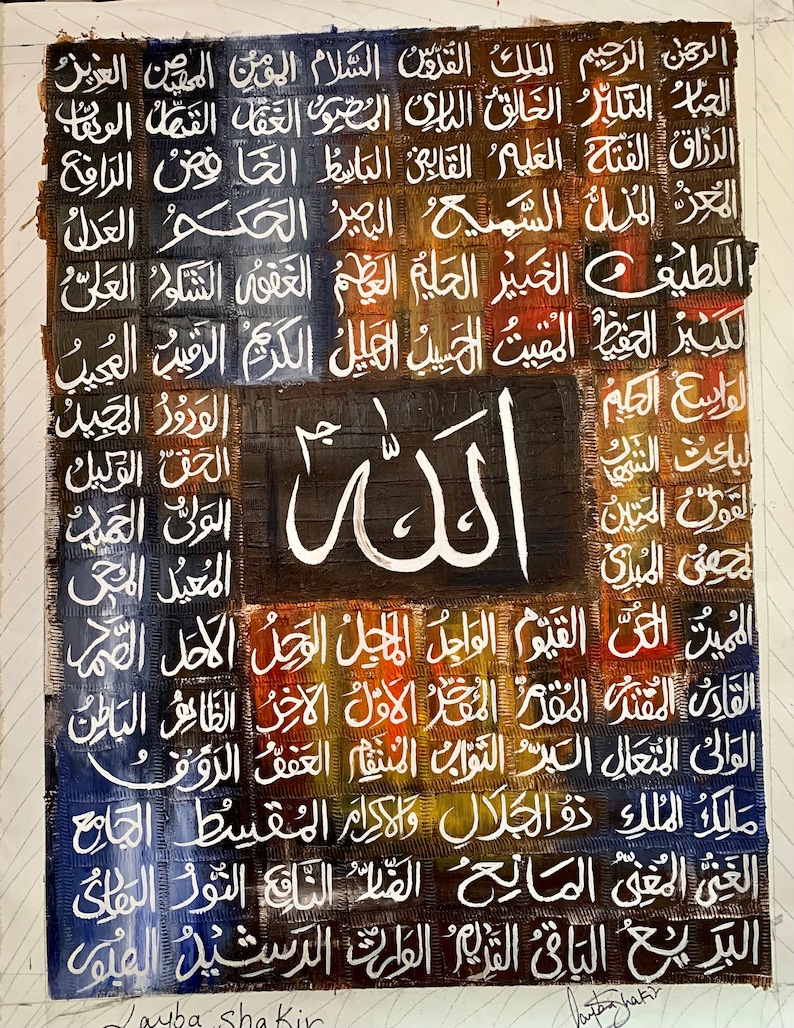 الرحمن الرحيم الملك القدوس السلام المؤمن المهيمن العزيز
الجبار المتكبر الخالق البارئ المصور الغفار القهار الوهاب
الرزاق الفتاح العليم القابض الباسط الخافض الرافع
المعز المذل السميع البصير الحكم العدل
اللطيف الخبير الحليم العظيم الغفور الشكور العلي
لكبير الحفيظ المقيت الحسيب الجليل الكريم الرقيب المجيب
لواسع الحكيم الودود المجيد
لباعث الشهيد الحق الوكيل
الله
القوي المتين الولي الحميد
لمحصي المبدئ المعيد المحي
المميت الحي القيوم الواجد الماجد الوحد الاحد الصمد
القادر المقتدر المقدم المؤخر الاول الاخر الظاهر الباطن
الوالي المتعال البر التواب المنتقم العفو الرؤوف
مالك الملك ذوالجلال والاكرام المقسط الجامع
الغني المغني المانع الضار النافع النور الهادي
البديع الباقي القديم الوارث الرشيد الصبور
Layba Shakir
Layba Shakir